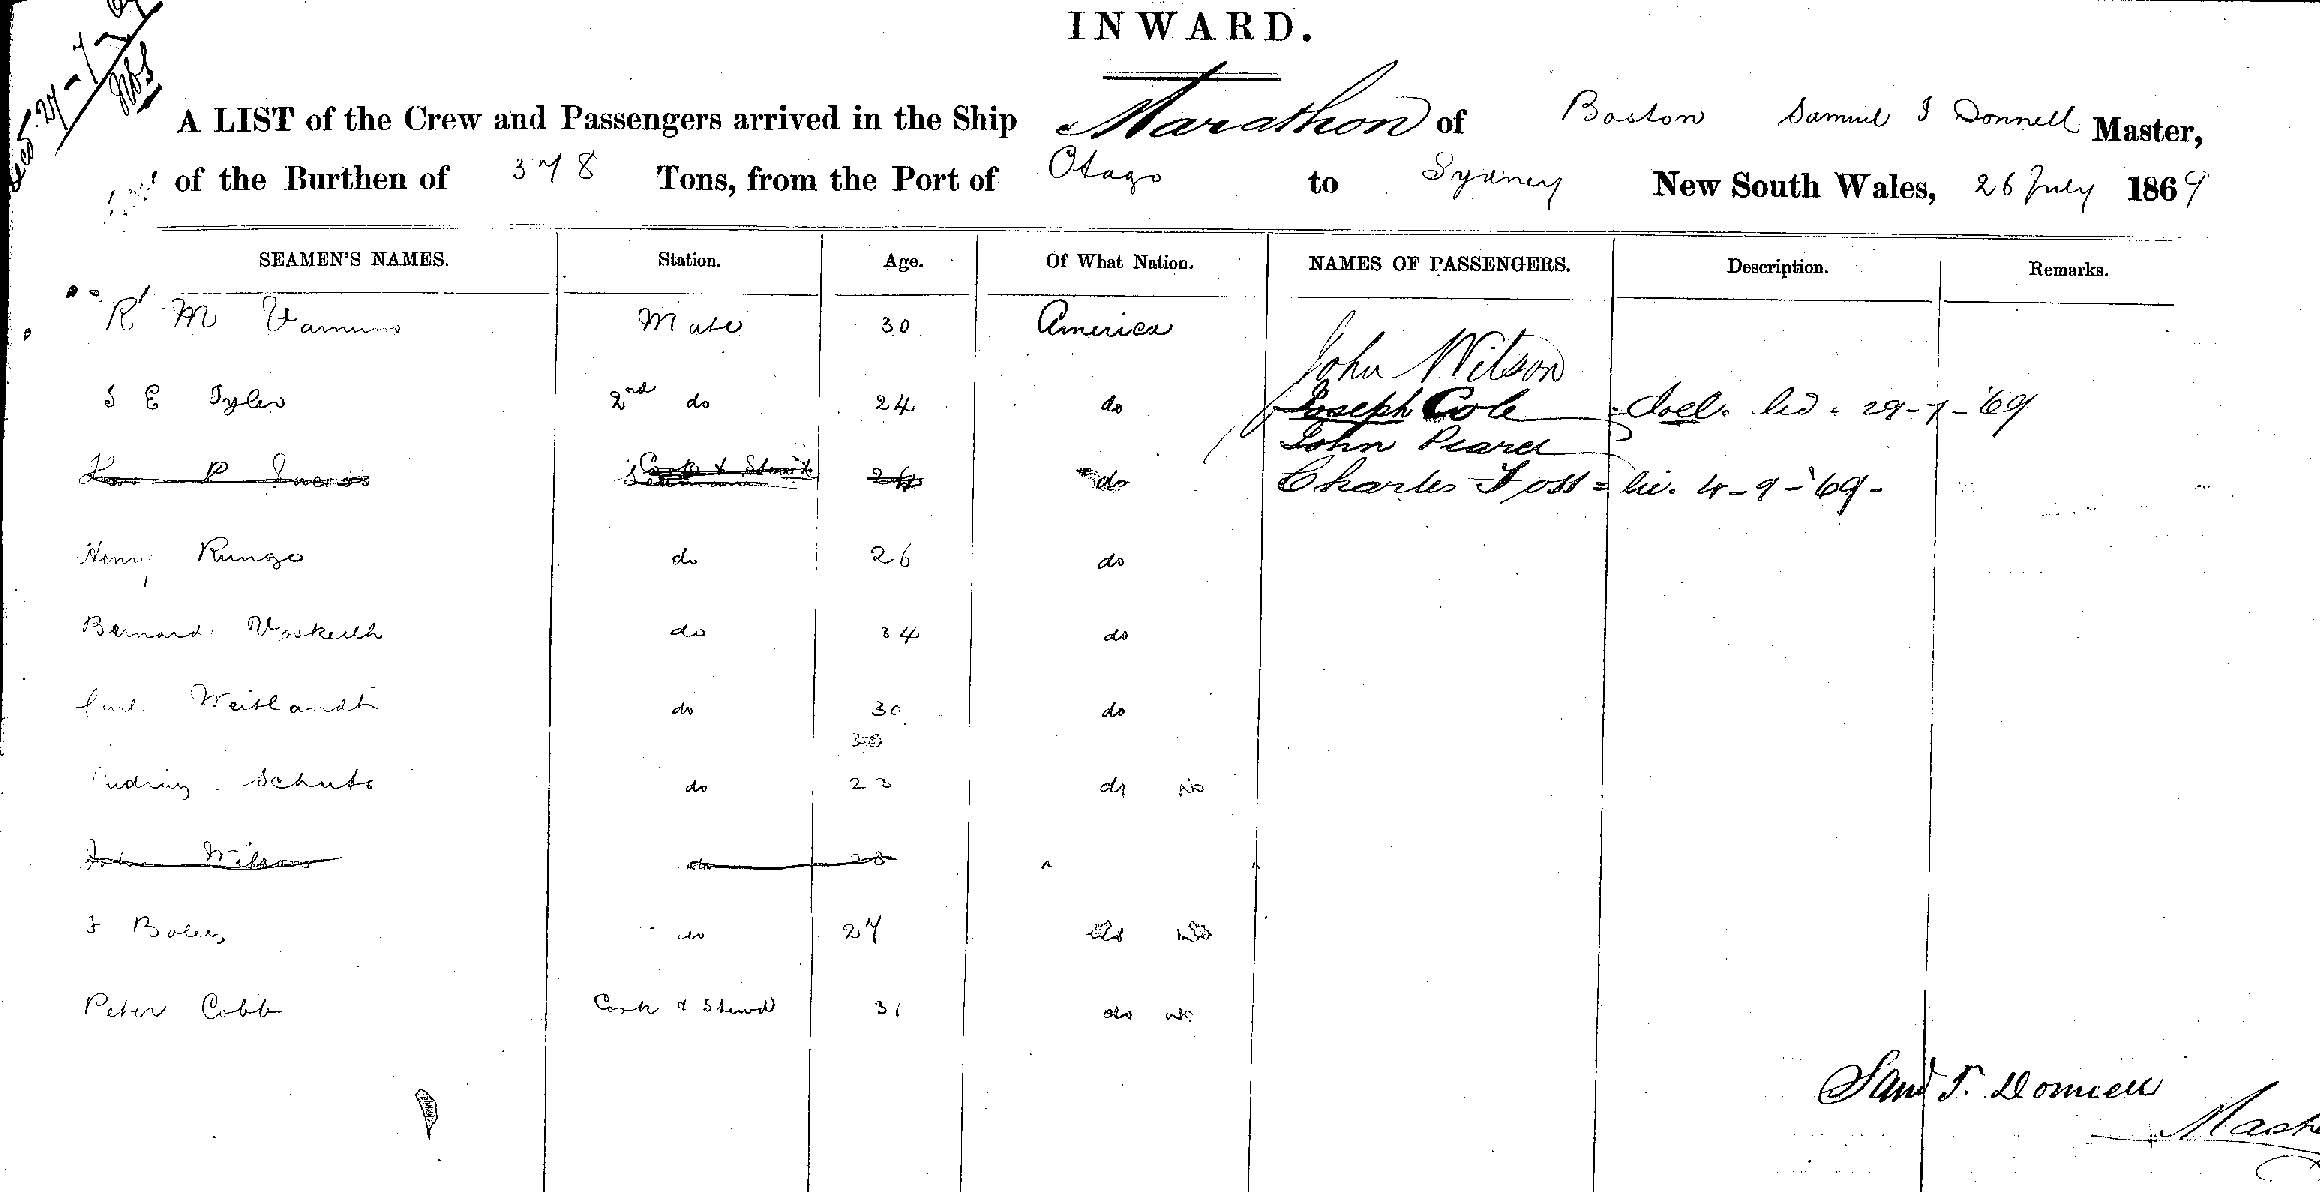 INWARD.
A LIST of the Crew and Passengers arrived in the Ship Marathon of Boston Samuel T Donnell Master,
of the Burthen of 378 Tons, from the Port of Otago to Sydney New South Wales, 26 July 1869
SEAMEN'S NAMES. Station. Age. Of What Nation. NAMES OF PASSENGERS. Description. Remarks.
R M Mate 30 America
John Wilson
S E Tyler 2nd do 24 do
Joseph Cole 29-7-'69
John Pearce
P Cook & Stew'd 24 do
Charles Foss = 4-9-'69-
Henry Runge do 26 do
Bernard do 34 do
Weitlandt do 30 do
30
Schuts do 23 do
John Wilson do 28
do 27 do
Peter Cobb Cook & Stewd 31 do
Saml T. Donnell